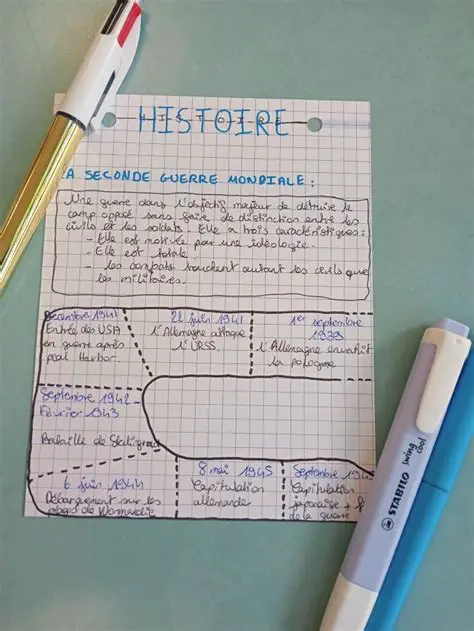 HISTOIRE
A SECONDE GUERRE MONDIALE :
Une guerre dans l'objectif majeur de détruire le
camp opposé sans faire de distinction entre les
civils et les soldats. Elle a trois caractéristiques :
- Elle est motivée par une idéologie.
- Elle est totale
- les combats touchent autant les civils que
les militaires.
Décembre 1941
Entrée des USA
en guerre après
peal Harbor.
21 juin 1941
l'Allemagne attaque
l'URSS.
1er septembre
1939
l'Allemagne envahit
la pologne
Septembre 1942 -
Février 1943
Bataille de Stalingrad
6 juin 1944
Débarquement sur les
plages de Normandie
8 mai 1945
Capitulation
allemande
Septembre 194
Capitulation
japonaise +
de la guerre
STABILO swing cool